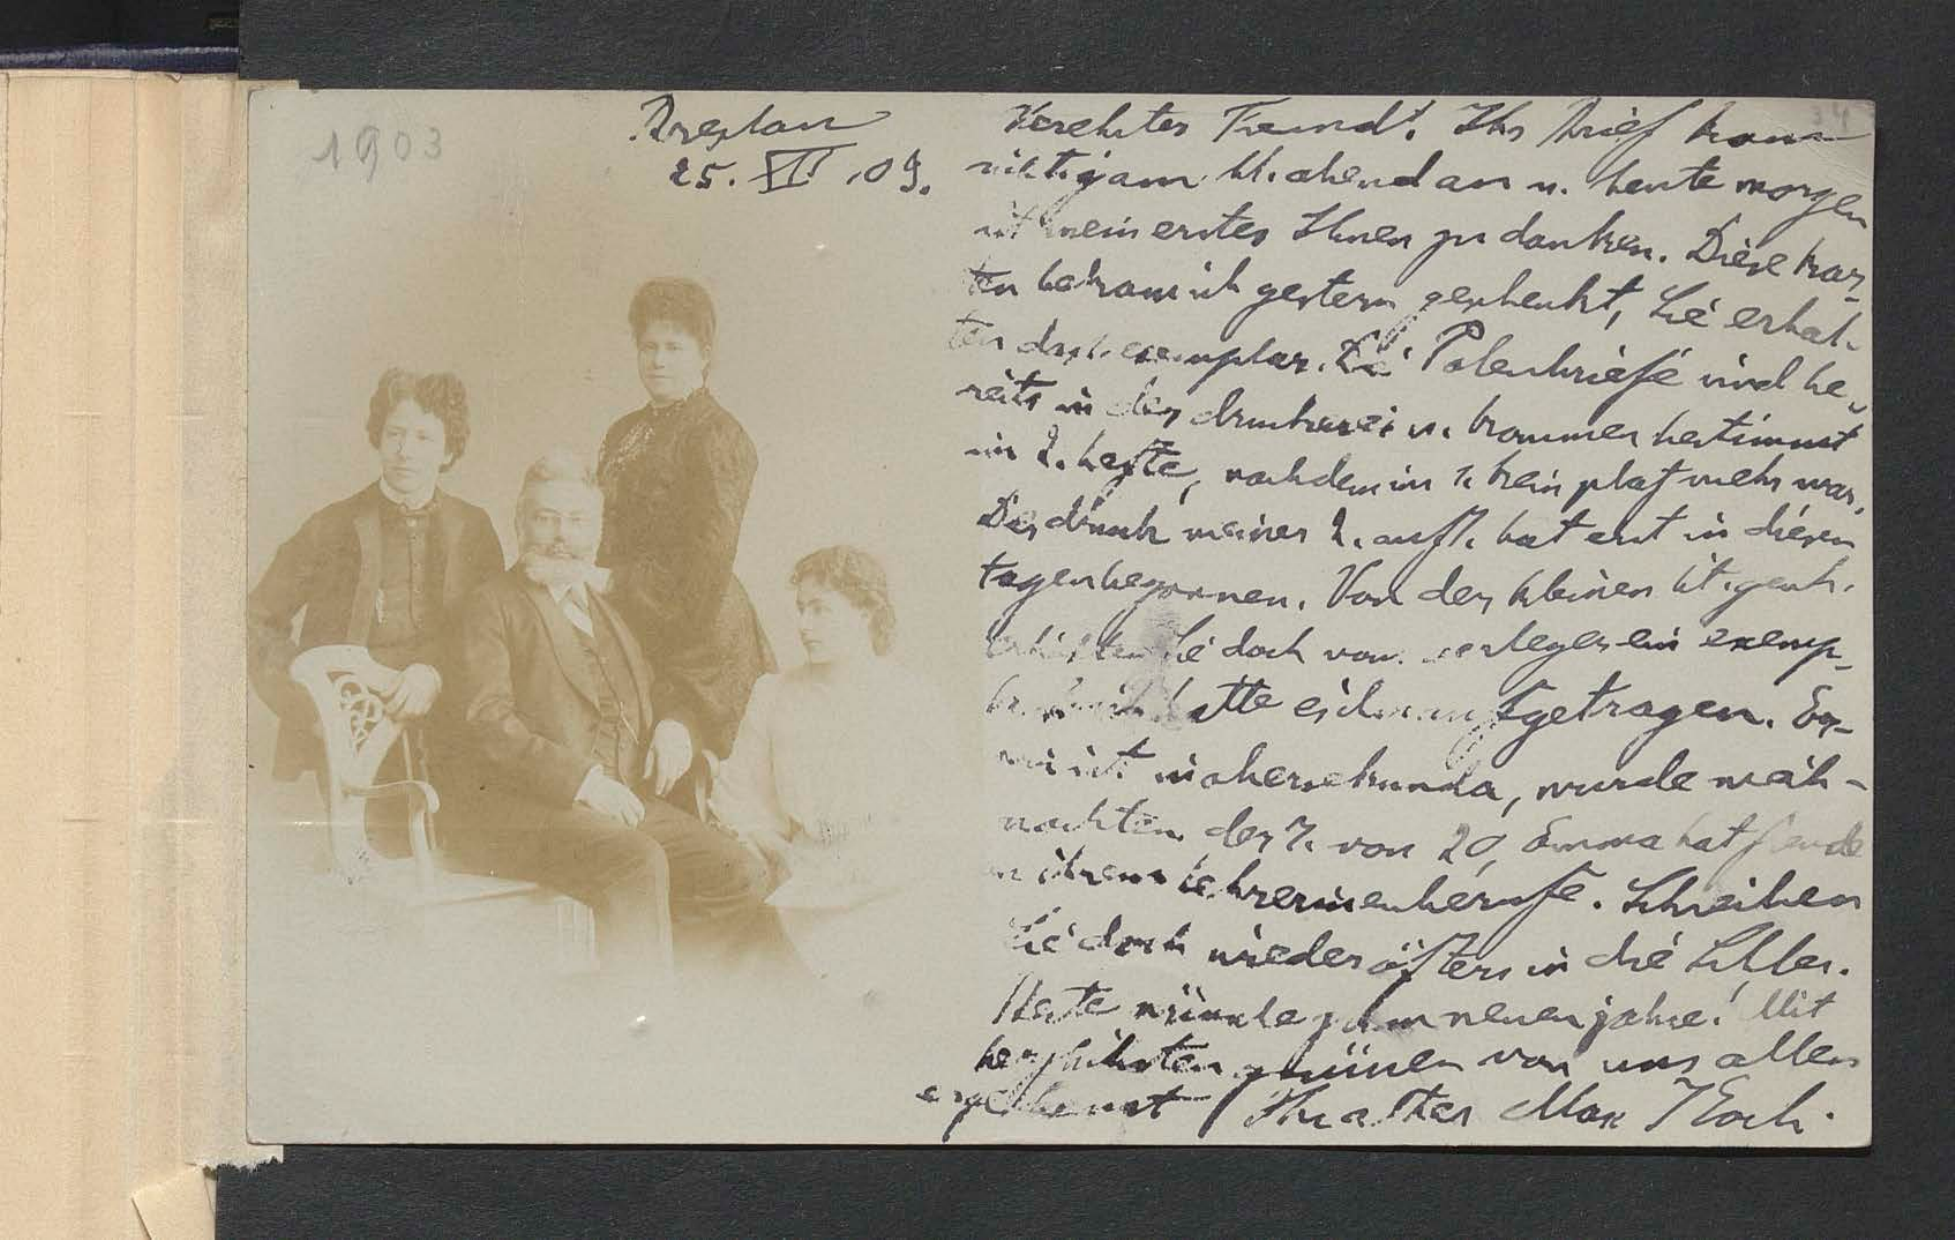 1903
Breslau
25. XII. 03.
34
Verehrter Freund! Ihr brief kam
richtig am hl. abend an u. heute morgen
ist mein erstes Ihnen zu danken. Diese kar-
ten bekam ich gestern geschenkt, Sie erhal-
ten das 1. exemplar. Die Polenbriefe sind be-
reits in der druckerei u. kommen bestimmt
im 2. hefte, nachdem im 1. kein plaz mehr war.
Der druck meiner 2. aufl. hat erst in diesen
tagen begonnen. Von der kleinen lit. gesch.
erhielten Sie doch vom verleger ein exemp-
hatte es ihm aufgetragen. Er-
ist in obersekunda, wurde weih-
nachten der 7. von 20, Emma hat freude
an ihrem lehrerinenberufe. Schreiben
Sie doch wieder öfters in die
Beste wünsche zum neuen jahre! Mit
herzlichsten grüssen von uns allen
ergebenst Ihr alter Max Koch.